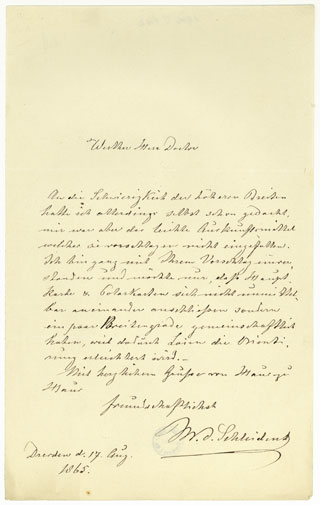 Werther Herr Doctor
An die Schwierigkeit der höheren Breiten
hatte ich allerdings selbst schon gedacht,
mir war aber das leichte Auskunftsmittel
welches Sie vorschlagen nicht eingefallen.
Ich bin ganz mit Ihrem Vorschlag einver
standen und möchte nur, daß Haupt
karte & Polarkarten sich nicht unmittel
bar aneinander anschließen sondern
ein paar Breitegrade gemeinschaftlich
haben, weil dadurch Laien die Orienti-
rung erleichtert wird.—
Mit herzlichem Gruße von Haus zu
Haus
freundschaftlichst
M. J. Schleiden
Dresden d. 17 Aug.
1865.